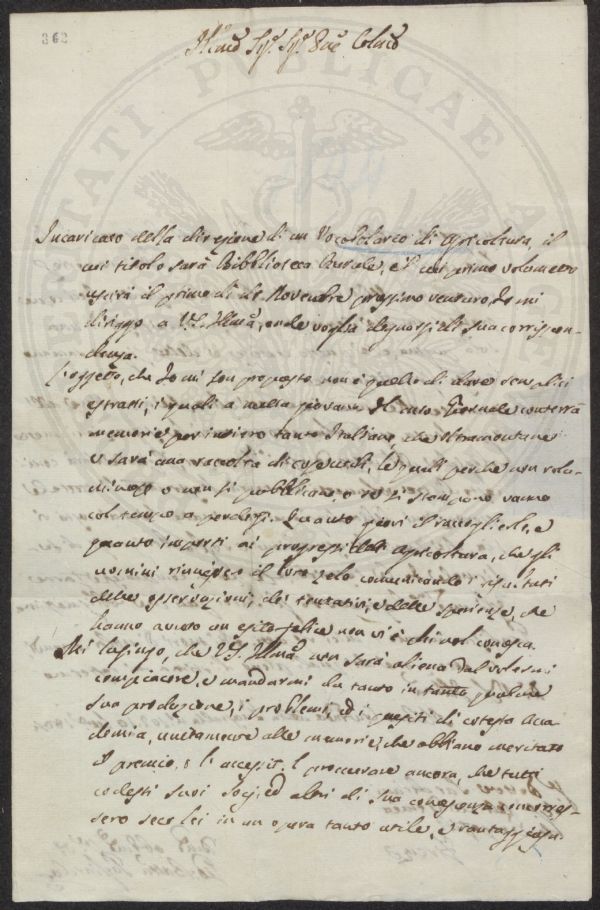 262
Illmo Sig.r Sig.r Pne Colmo
Incaricato della direzione di un Vocobolareo di Agricoltura, il
cui titolo sarà Bibblioteca Rurale, e il cui primo volumetto
uscirà il primo dì di Novembre prossimo venturo, Io mi
dirigo a V.S. Illma, onde voglia degnarsi di sua corrispon-
denza.
L'oggetto, che Io mi son proposto non è quello di dare semplici
estratti, i quali a nulla giovano. Il Giornale conterrà
memorie per intiero tanto Italiane che Oltramontane
e sarà una raccolta di opuscoli, le quali perchè non volu-
minose o non si pubblicano o se si stampano vanno
col tempo a perdersi. Quanto giovi il raccoglierle, e
quanto importi ai progressi dell' Agricoltura, che gli
uomini rinnovino il loro zelo comunicando i risultati
delle osservazioni, dei tentativi, e delle sperienze, che
hanno avuto un esito felice non vi è chi nol conosca.
Mi lusingo, che V.S. Illma non sarà aliena dal volermi
compiacere, e mandarmi di tanto in tanto qualche
sua produzione, i problemi, ed i quesiti di cotesta Acca-
demia, unitamente alle memorie, che abbiano meritato
il premio, o l'accessit. E proccurare ancora, che tutti
codesti suoi Socj, ed altri di sua conoscenza concorres-
sero seco lei in un opera tanto utile, e vantaggiosa.
VERITATI PVBLICAE